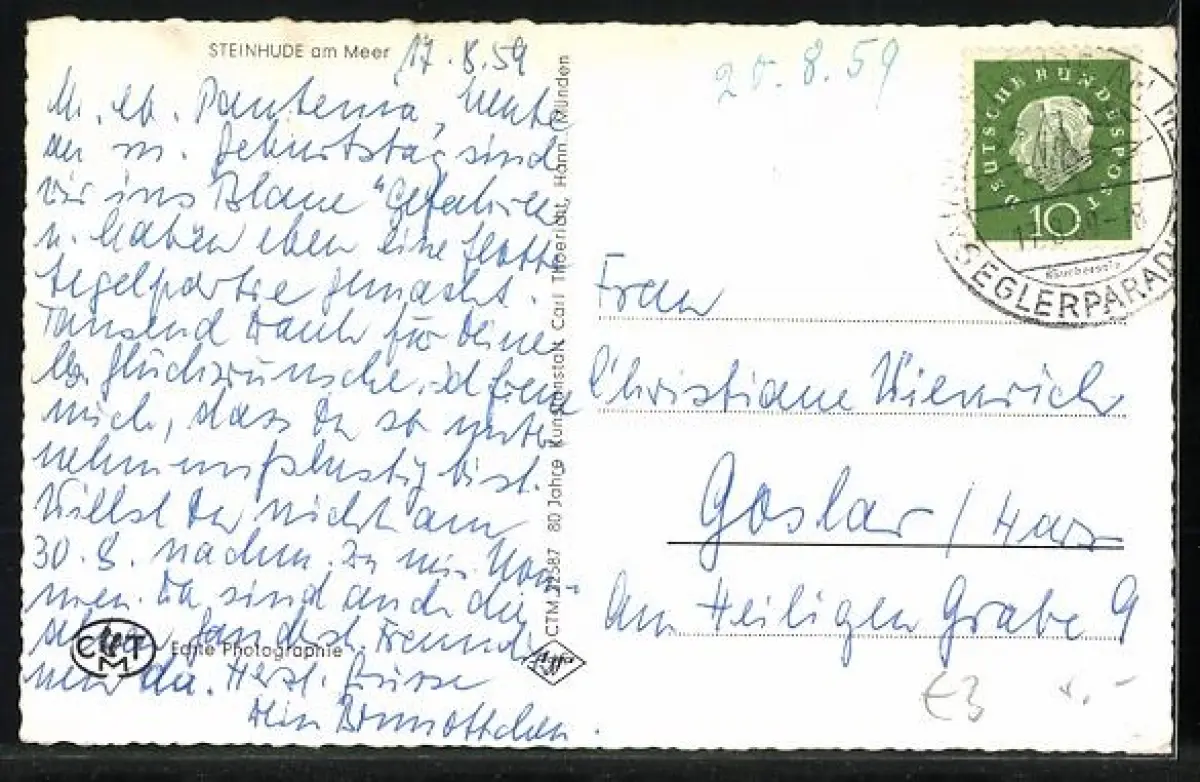 STEINHUDE am Meer 17.8.59
M. lb. Pantenia, heute
an m. Geburtstag sind
wir ins Blaue "gefahren
u. haben eben eine flotte
Segelpartie gemacht.
Tausend Dank für Deine
lb. Glückwünsche. Ich freue
mich, dass Du so unter
nehmungslustig bist.
Willst Du nicht am
30.8. nachm. zu mir kom-
men. Da sind auch die
Freund
nen da. Herzl. Grüsse
Dein
CTM
Echte Photographie
CTM 22587 80 Jahre Kunstanstalt Carl Thoericht, Hann. Münden
20.8.59
DEUTSCHE BUNDESPOST
10
SEGLERPARAD
Frau
Christiane Wienrich
Goslar / Harz
Am Heiligen Grabe 9
€3